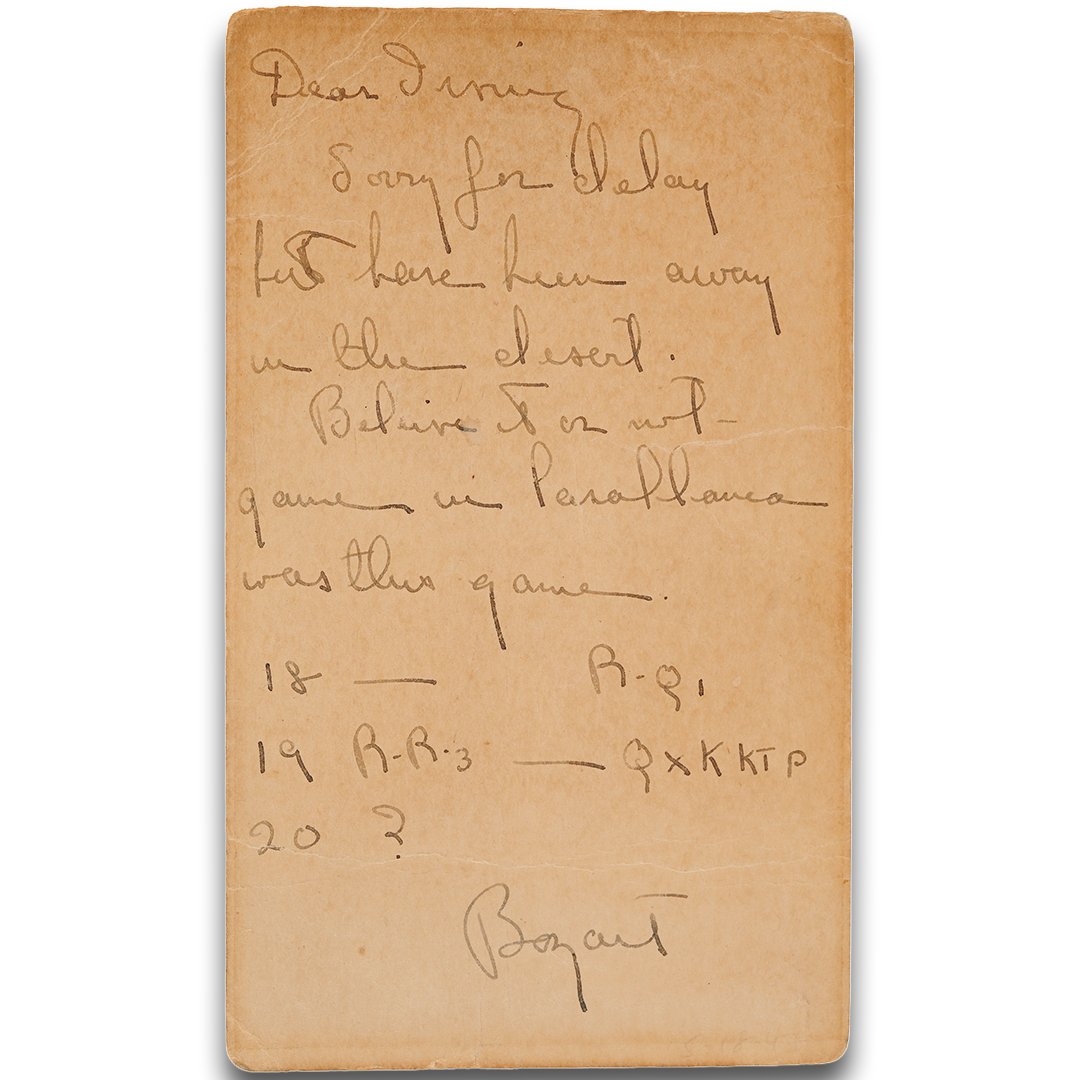 Dear Irving
Sorry for delay
but have been away
in the desert.
Beleive it or not-
game in Casablanca
was this game.
18 — R-Q1
19 R-R.3 — QxKKTP
20 ?
Bogart